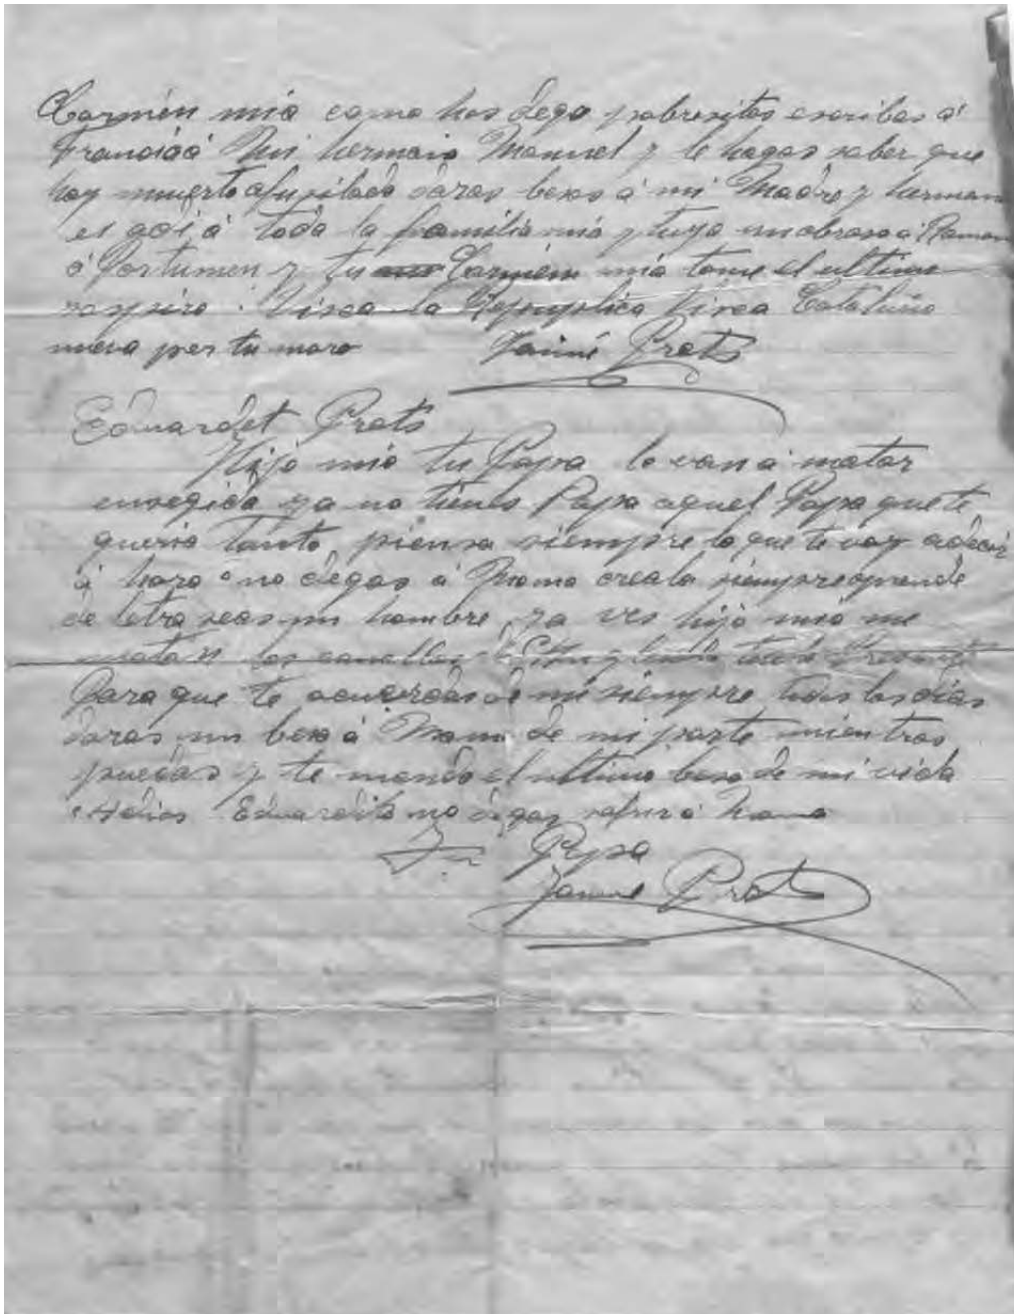 Carmen mia como hos dego pobresitos escribas á
Francia á Mi hermano Manuel y le hagas saber que
hoy muerto afusilado daras besos á mi Madre y herman
es a toda la familia mia y tuya un abraso á Ramon
á Fortumen y tu Carmen mia toma el ultimo
respiro Visca la Republica Visca Cataluña
per tu
Jaime Prats
Eduardet Prats
Hijo mio tu Papa lo van á matar
ensegida ya no tienes Papa aquel Papa que te
queria tanto, piensa siempre lo que te voy adecir
á hora no degas á Mama creala siempre aprende
de letra seas un hombre, ya ves hijo mio me
matan los canallas
Para que te acuerdas de mi siempre todos los dias
daras un beso á Mama de mi parte mientras
puedas y te mando el ultimo beso de mi vida
Adios Eduardito no degas sufrir á Mama
Tu Papa
Jaime Prats